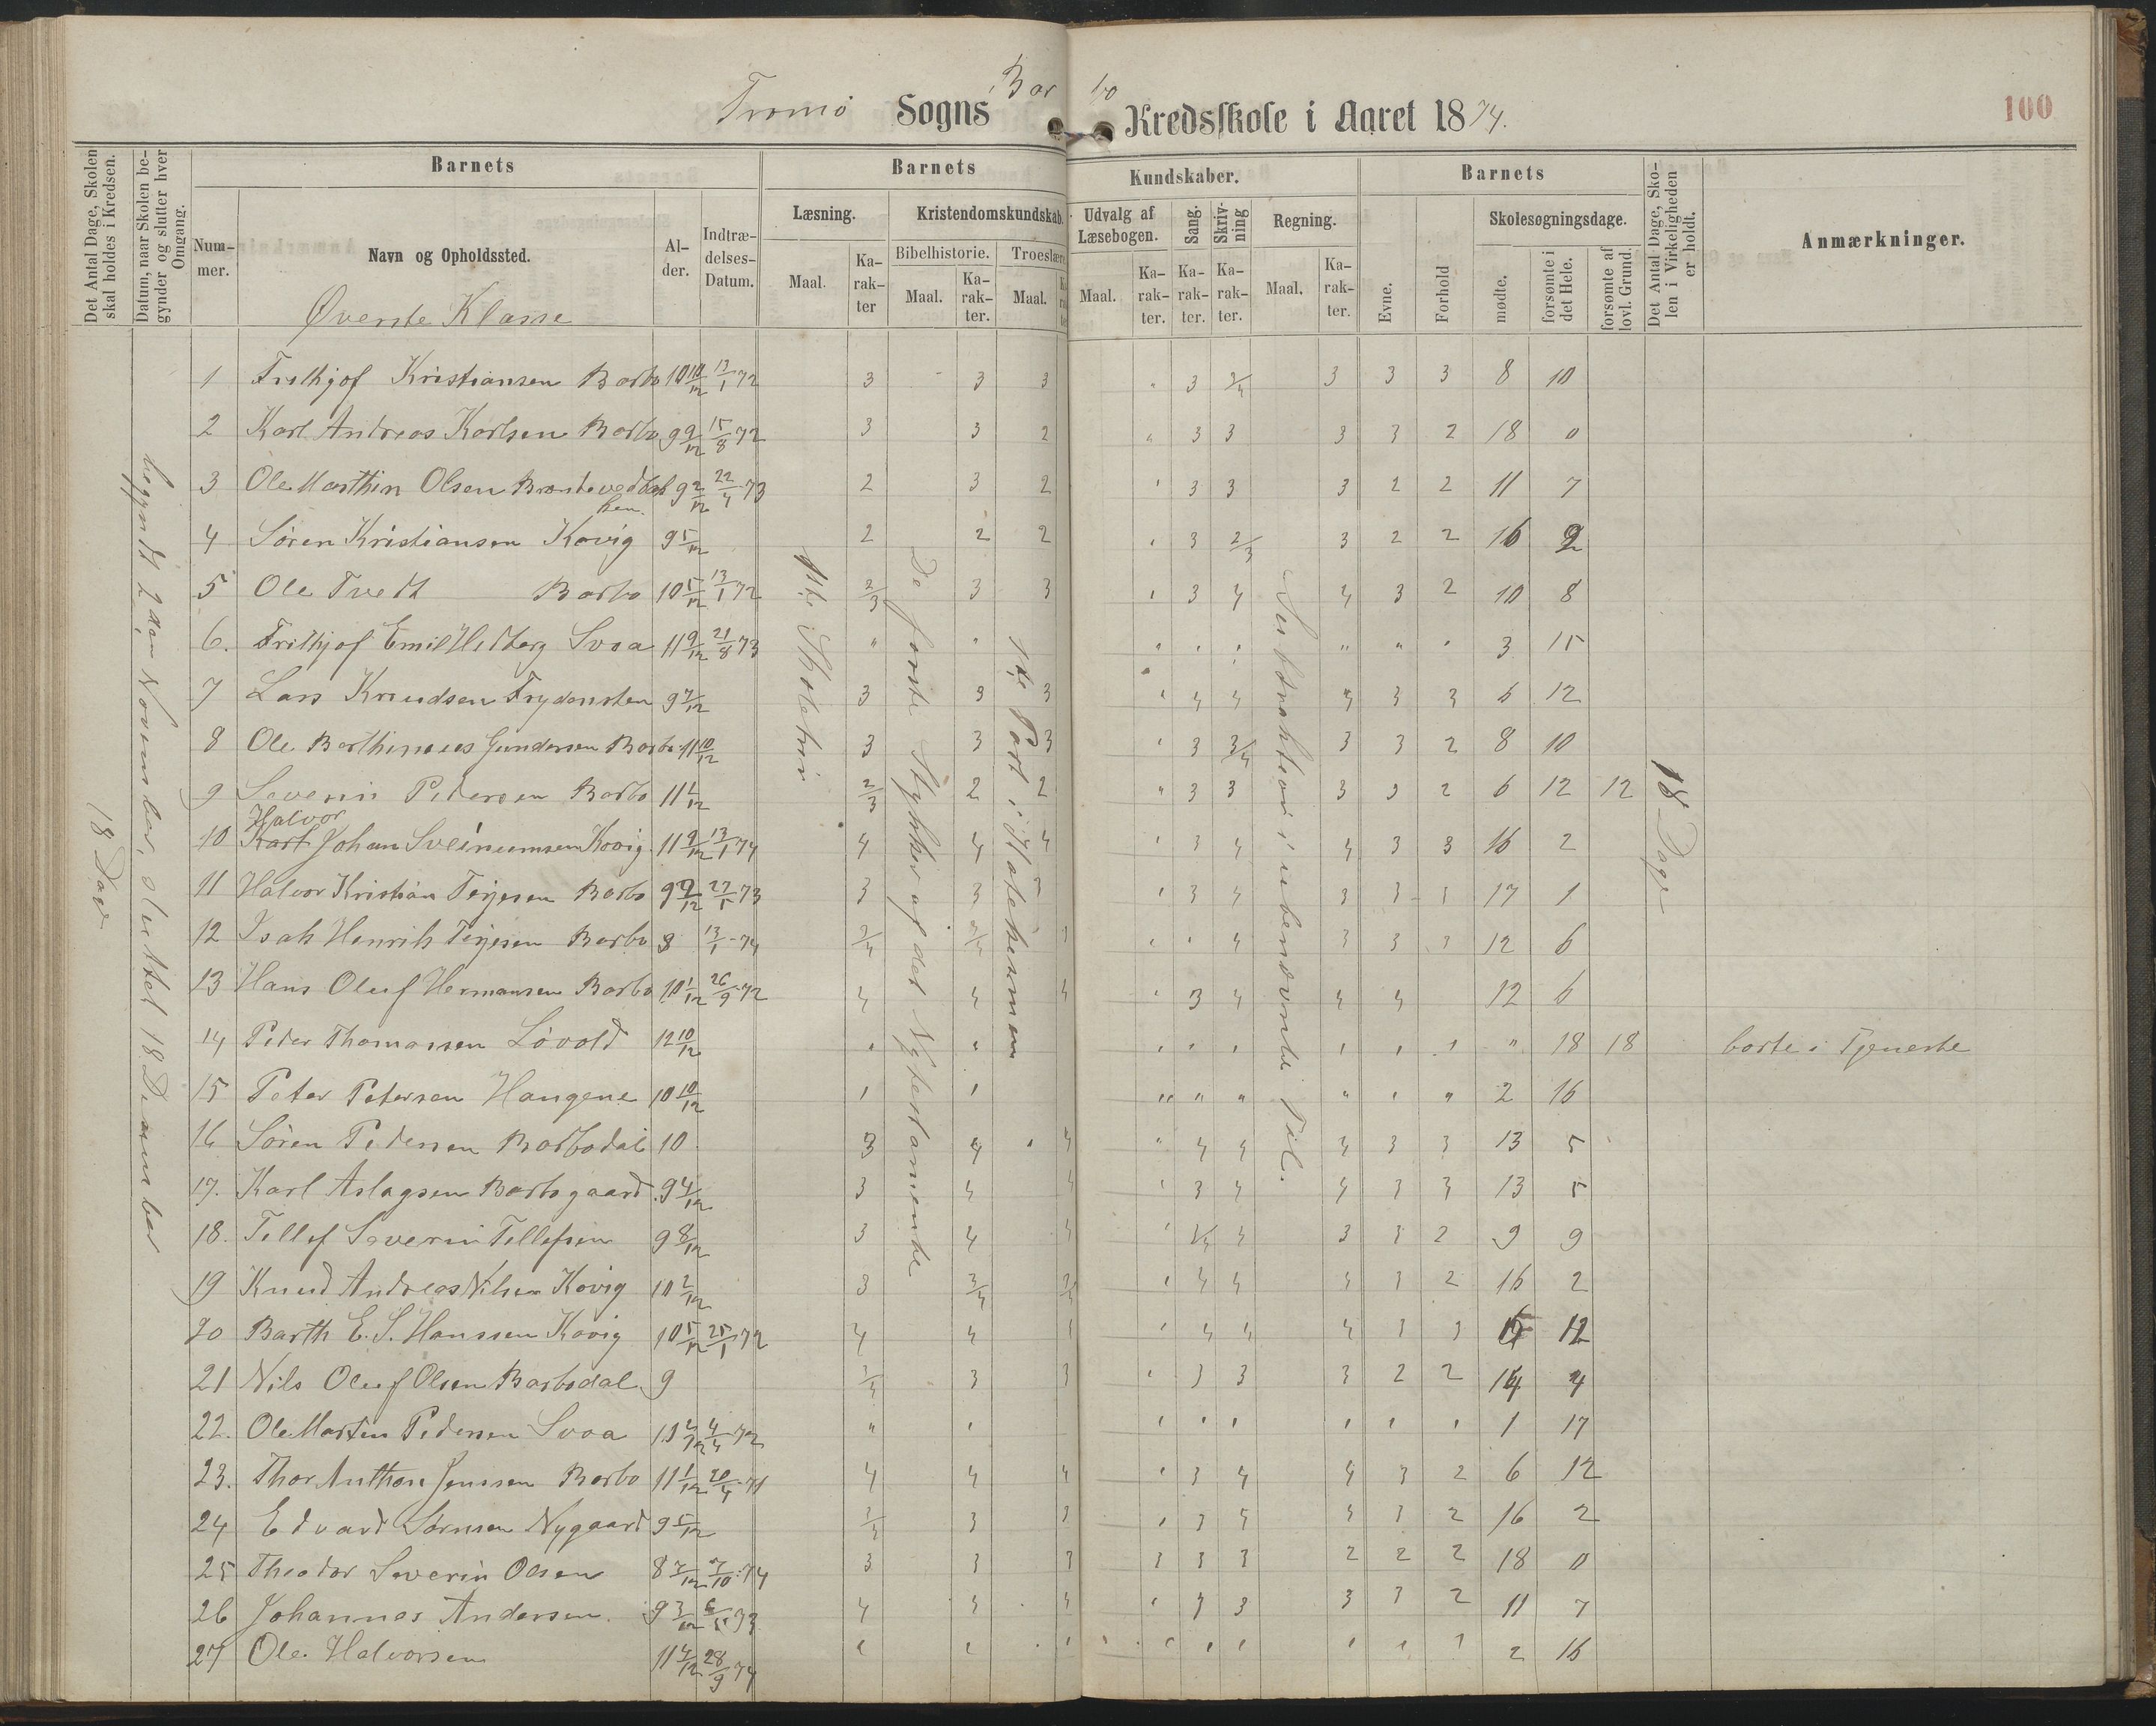 Tromø Sogns Barbo Kredsskole i Aaret 1874.
100
Det Antal Dage, Skolen skal holdes i Kredsen.
Datum, naar Skolen begynder og slutter hver Omgang.
Barnets
Nummer.
Navn og Opholdssted.
Alder.
Indtrædelses-Datum.
Barnets Kundskaber.
Læsning.
Maal.
Karakter
Kristendomskundskab.
Bibelhistorie.
Maal.
Karakter.
Troeslære
Maal.
Udvalg af Læsebogen.
Maal.
Karakter.
Sang.
Karakter.
Skrivning
Karakter.
Regning.
Maal.
Karakter.
Barnets
Evne.
Forhold
Skolesøgningsdage.
mødte.
forsømte i det Hele.
forsømte af lovl. Grund.
Det Antal Dage, Skolen i Virkeligheden er holdt.
Anmærkninger.
Øverste Klasse
18 Dage
begyndt 2den November, sluttet 18 Decemnber
De første Stykker af det Ny testamente
1ste Part i Katekismen
18 Dage
1 Frithjof Kristiansen Barbo 10 10/12 13/1 72 3 3 3 " 3 3/4 3 3 3 8 10
2 Karl Andreas Karlsen Barbo 9 9/12 15/8 72 3 3 2 " 3 3 3 3 2 18 0
3 Ole Marthin Olsen 9 2/12 22/4 73 2 3 2 " 3 3 3 2 2 11 7
4 Søren Kristiansen Kovig 9 5/12 2 2 2 " 3 2/3 3 2 2 16 2
5 Ole Tvedt Barbo 10 5/12 13/1 72 2/3 3 3 " 3 4 4 3 2 10 8
6. Frithjof Emil Svoa 11 9/12 21/8 73 " " " " " " " " 3 15
7 Lars Knudsen Frydensten 9 7/12 3 3 3 " 4 4 4 3 3 6 12
8 Ole Barthinius Gundersen Barbo 11 10/12 3 3 3 " 3 3/4 3 3 2 8 10
9 Severin Pedersen Barbo 11 1/12 2/3 2 2 " 3 3 3 3 2 6 12 12
Halvor
10 Karl Johan Sveinumsen Kovig 11 9/12 13/1 74 4 4 4 " 3 4 4 3 3 16 2
11 Halvor Kristian Terjesen Barbo 9 9/12 27/5 73 3 3 3 " 3 4 3 3 3 17 1
12 Isak Henrik Terjesen Barbo 8 13/1 74 3/4 3/4 3 " " 4 3 3 3 12 6
13 Hans Oluf Hermansen Barbo 10 1/12 26/9 72 4 4 4 " 3 4 4 4 12 6
14 Peder Thomassen Løvold 12 10/12 " " " " " " " " " 18 18 borte i Tjeneste
15 Peter Petersen Haugene 10 10/12 " " " " " " " " 2 16
16 Søren Pedersen Barbodal 10 3 4 4 " 4 4 4 3 3 13 5
17. Karl Aslagsen Barbogaard 9 4/12 3 4 4 " 3 4 4 3 3 13 5
18. Tellef Severin Tellefsen 9 8/12 3 4 4 " 3/4 4 3 3 2 9 9
19 Knud Andreas Nilsen Kovig 10 2/12 3 3/4 3/4 " 4 4 4 3 2 16 2
20 Barth E. S. Hanssen Kovig 10 5/12 25/1 72 4 4 " 4 4 4 3 3 6 12
21 Nils Oluf Olsen Barbodal 9 3/4 3 3 " 3 3 3 2 2 14 4
22. Ole Marten Pedersen Svoa 4/4 72 " " " " " " " " 1 17
23. Thor Anthon Jenssen Barbo 11 1/12 20/4 71 4 4 4 " 3 4 4 3 2 6 12
24 Edvard Sørnsen Nygaard 9 5/12 3/4 3 3 " 3 4 3 2 16 2
25 Theodor Severin Olsen 8 7/12 7/10 74 3 3 3 3 3 3 2 2 2 18 0
26 Johannes Andersen. 9 3/12 73 4 4 4 " 3 3 3 3 2 11 7
27 Ole Halvorsen 11 4/12 28/9 74 " " " " " " " " " 2 16